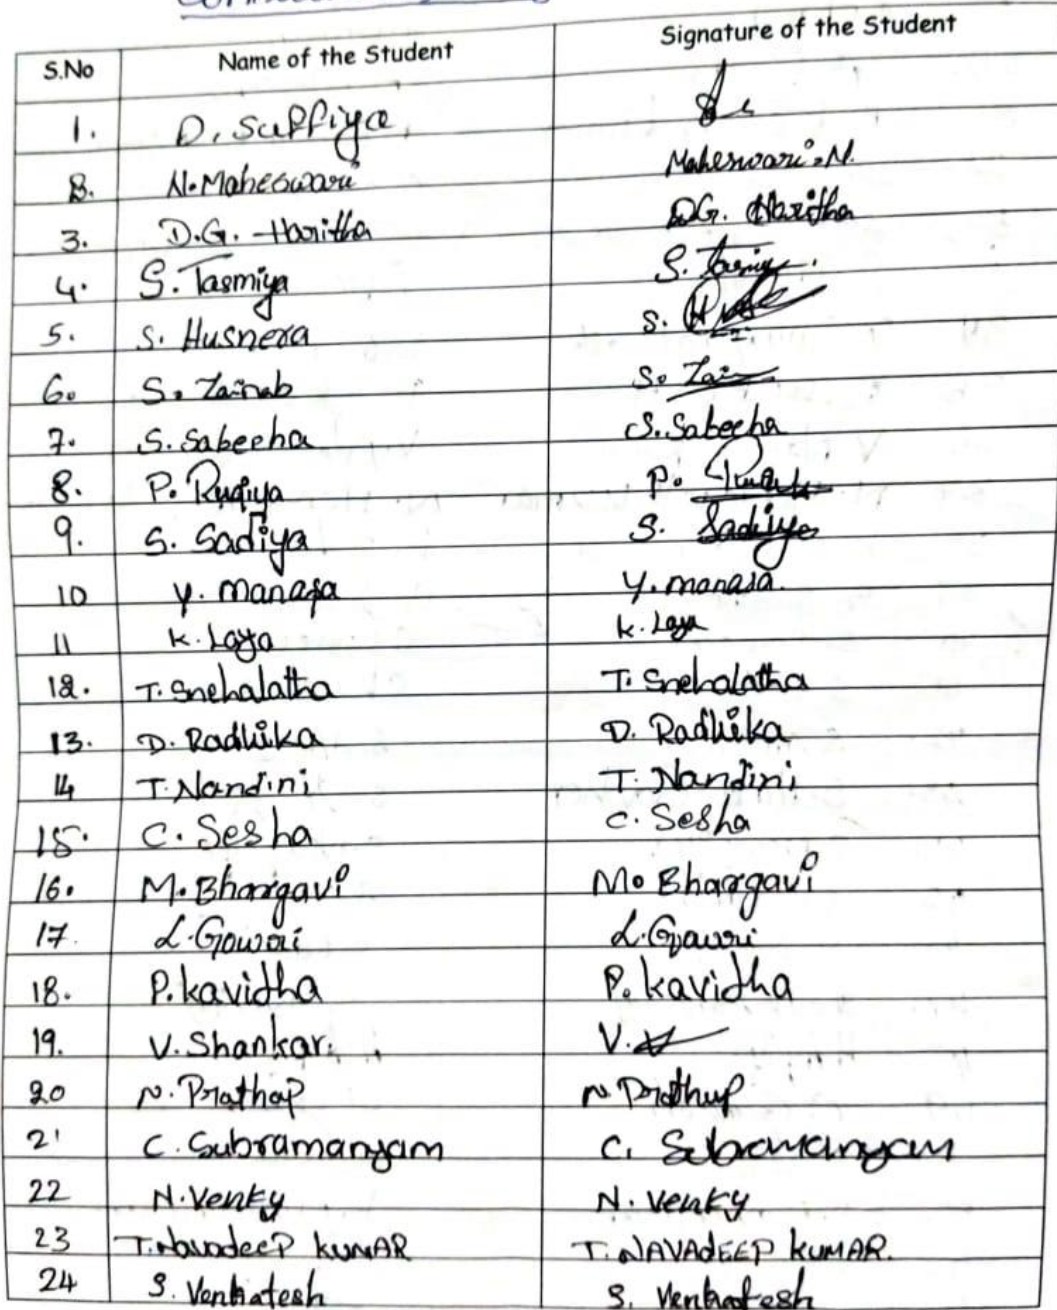 S.No Name of the Student Signature of the Student
1. D. Suffiya
2. N. Maheswari Maheswari. N.
3. D.G. Haritha D.G. Haritha
4. S. Tasmiya S. Tasmiya.
5. S. Husnera S.
6. S. Zainab S. Zai
7. S. Sabeeha S. Sabeeha
8. P. Ruqiya P.
9. S. Sadiya S. Sadiya
10 Y. Manasa Y. manasa.
11 K. Laya K. Laya
12. T. Snehalatha T. Snehalatha
13. D. Radhika D. Radhika
14 T. Nandini T. Nandini
15. C. Sesha C. Sesha
16. M. Bhargavi M. Bhargavi
17. L. Gowri L. Gowri
18. P. kavidha P. kavidha
19. V. Shankar. V.
20 N. Prathap N Prathap
21 C. Subramanyam C. Subramanyam
22 N. Venky N. Venky
23 T. Navadeep KUMAR T. NAVADEEP KUMAR.
24 S. Venkatesh S. Venkatesh